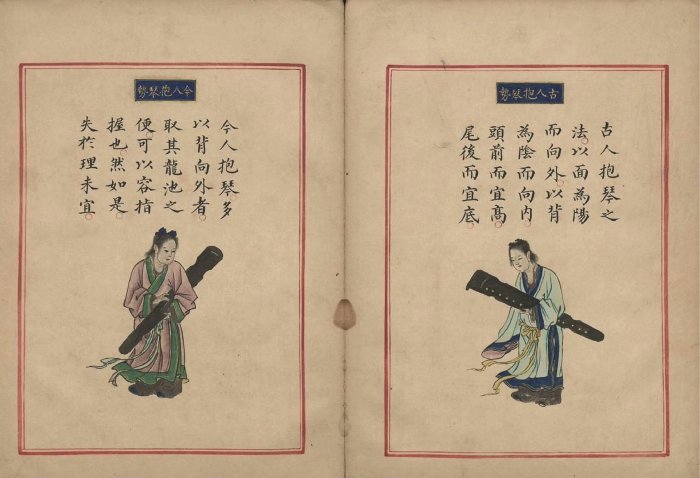 古人抱琴勢
古人抱琴之
法以面為陽
而向外以背
為陰而向内
頭前而宜髙
尾後而宜底
今人抱琴勢
今人抱琴多
以背向外者
取其龍池之
便可以容指
握也然如是
失於理未宜